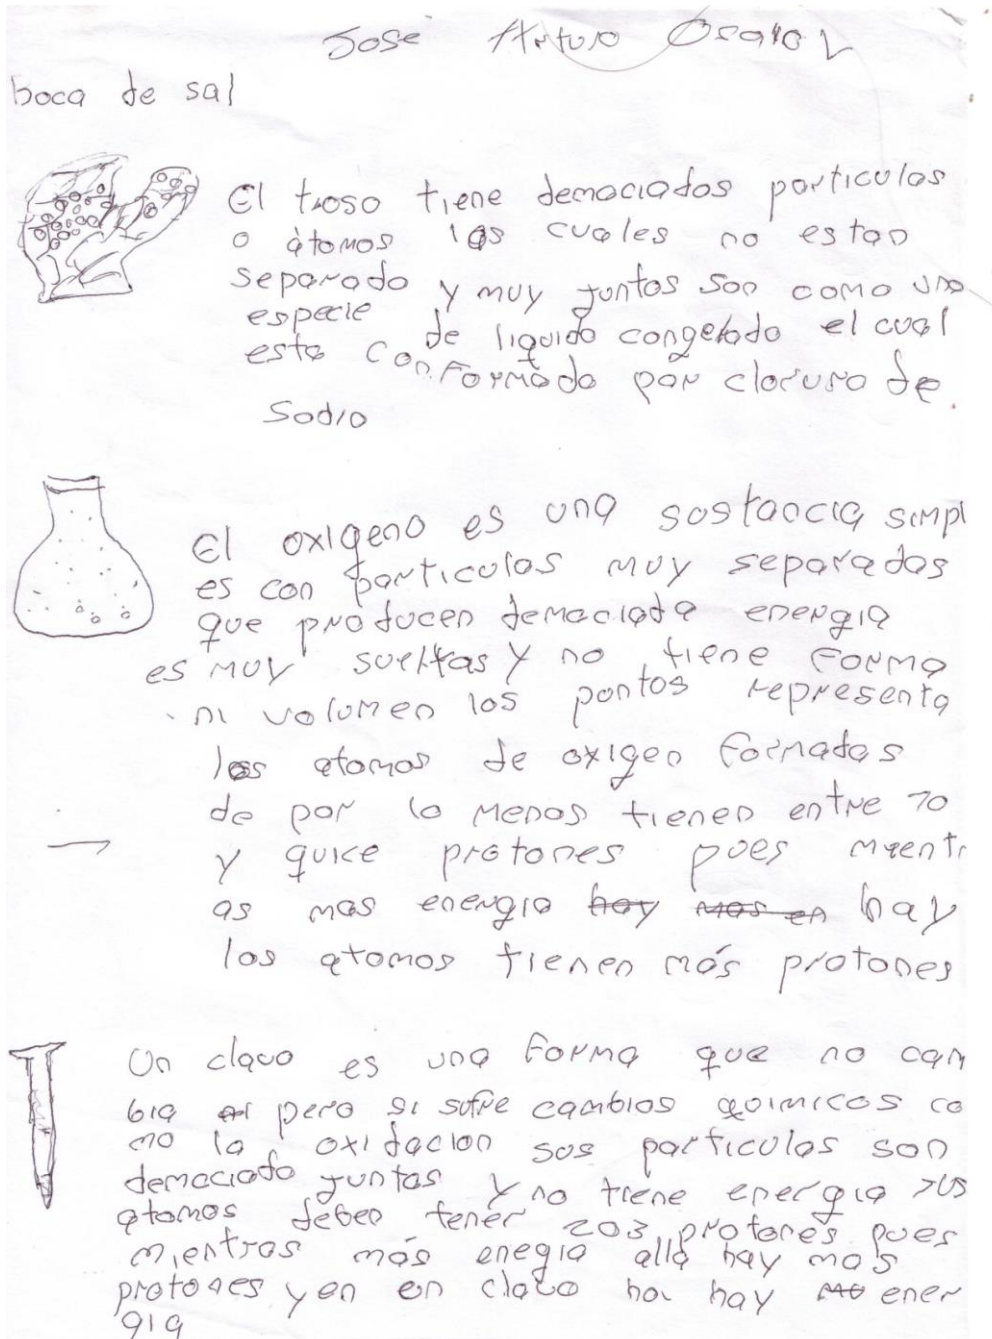 Jose Arturo
boca de sal
El troso tiene demaciados particulas
o àtomos las cuales no estan
separado y muy juntos son como una
especie de liquido congelado el cual
esta conformado por cloruro de
sodio
El oxigeno es una sostancia simpl
es con particulas muy separadas
que producen demaciada energia
es muy sueltas y no tiene forma
ni volumen los pontos representa
los atomos de oxigen formadas
de por lo menos tienen entre 10
y quice protones pues mient
as mas energia hay mas en hay
los atomos tienen más protones
Un clavo es una forma que no cam
bia pero si sufre cambios quimicos co
mo la oxidacion sus particulas son
demaciado juntas y no tiene energia sus
atomos deben tener 2o3 protones pues
mientras más enegia alla hay mas
protones y en en clavo no hay ener
gia